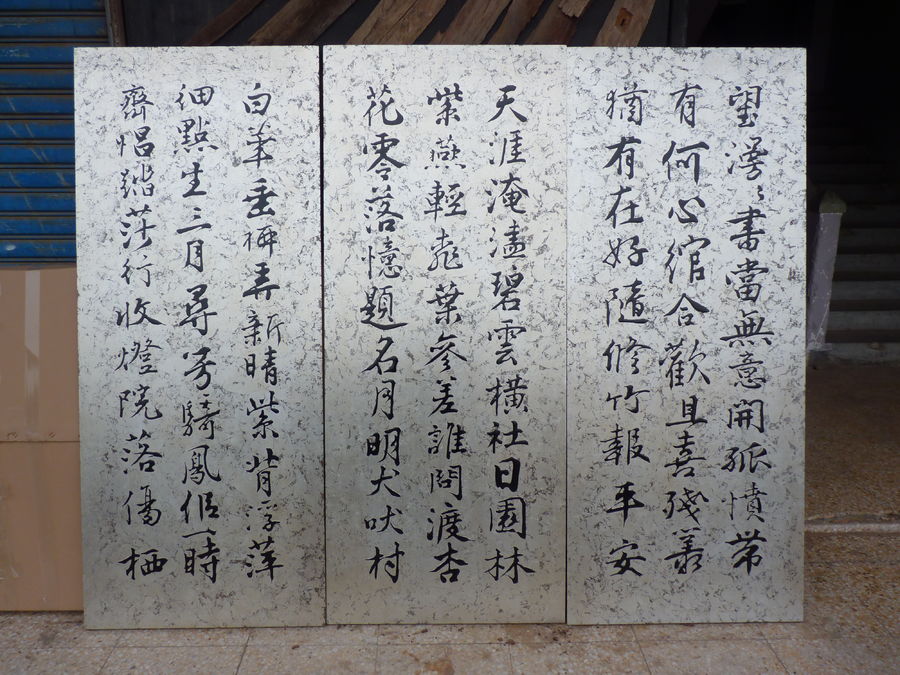 望湯〻書當無意開孤憤帶
有何心綰合歡且喜殘叢
猶有在好隨修竹報平安
天涯淹濜碧雲橫社日園林
紫燕輕桃葉參差誰問渡杏
花零落憶題名月明犬吠村
白華垂柳弄新晴紫背浮萍
細點生三月尋芳騎鳳侶一時
齊唱踏莎行收燈院落傷栖